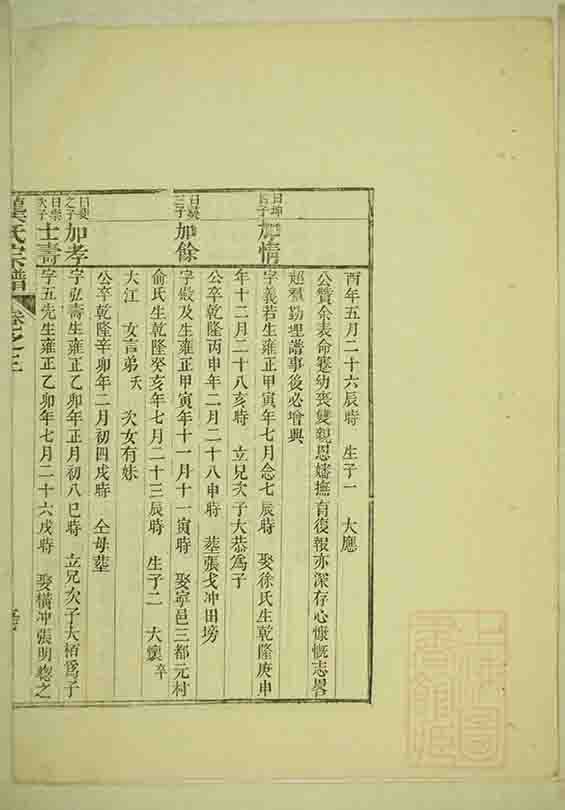 酉年五月二十六辰時　生子一　大應
公贊余表命蹇幼喪雙親恩嬸撫育復報亦深存心慷慨志畧
超羣勤理譜事後必增興
日坤
長子
加情
字義若生雍正甲寅年七月念七辰時　娶徐氏生乾隆庚申
年十二月二十八亥時　立兄次子大恭爲子
公卒乾隆丙申年二月二十八申時　塟張戈冲田塝
三子
加餘
字敞及生雍正甲寅年十一月十一寅時　娶寧邑三都元村
俞氏生乾隆癸亥年七月二十三辰時　生子二　大懷卒
大江　女言弟夭　次女有妹
公卒乾隆辛卯年二月初四戌時　仝母塟
之子
加孝
字弘壽生雍正乙卯年正月初八巳時　立兄次子大栢爲子
日崇
次子
士壽
字五先生雍正乙卯年七月二十六戌時　娶橫冲張明總之
氏宗譜
卷之三